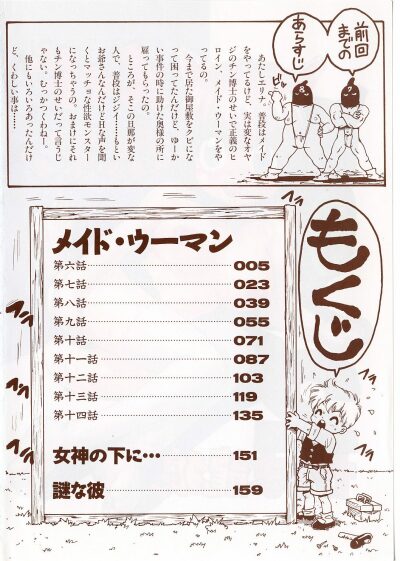 前回
までの
あらすじ
あたしエリナ。普段はメイド
をやってるけど、実は変なオヤ
ジのチン博士のせいで正義のヒ
ロイン、メイド・ウーマンをや
ってるの。
今まで居た御屋敷をクビにな
って困ってたんだけど、ゆーか
い事件の時に助けた奥様の所に
雇ってもらったの。
ところが、そこの旦那が変な
人で、普段はジジイ……もとい
お爺さんなんだけどHな声を聞
くとマッチョな性欲モンスター
になっちゃうの。おまけにそれ
もチン博士のせいだって言うじ
ゃない。むっかつくわねー。
他にもいろいろあったんだけ
ど、くわしい事は……
もくじ
メイド・ウーマン
第六話 005
第七話 023
第八話 039
第九話 055
第十話 071
第十一話 087
第十二話 103
第十三話 119
第十四話 135
女神の下に… 151
謎な彼 159